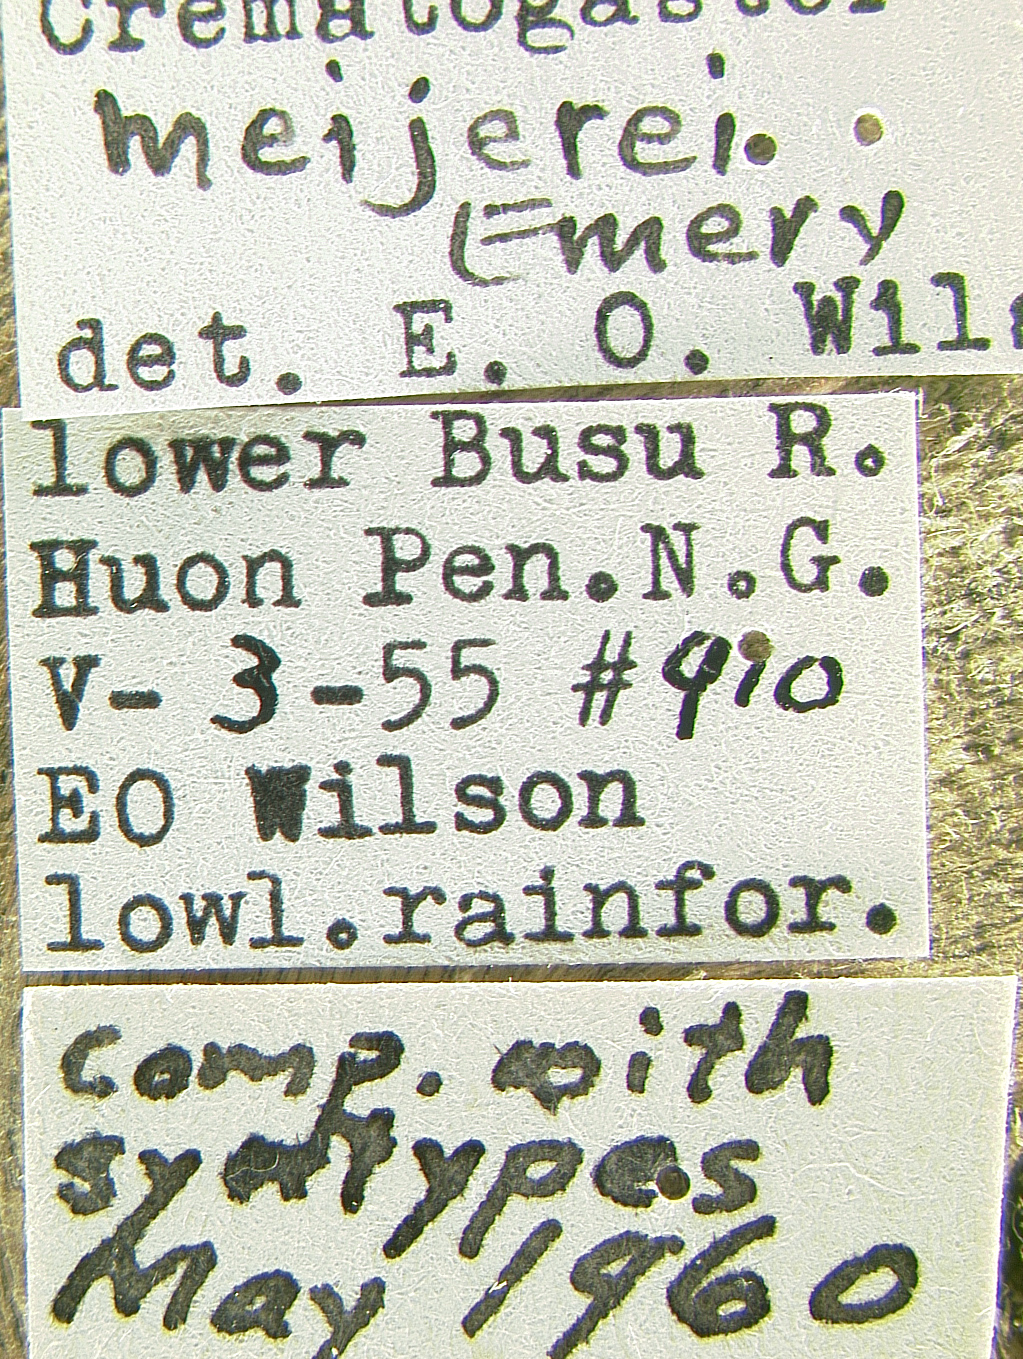 Crematogaster
meijerei.
Emery
det. E. O. Wils
lower Busu R.
Huon Pen.N.G.
V- 3 -55 #910
EO Wilson
lowl.rainfor.
comp. with
syntypes
May 1960